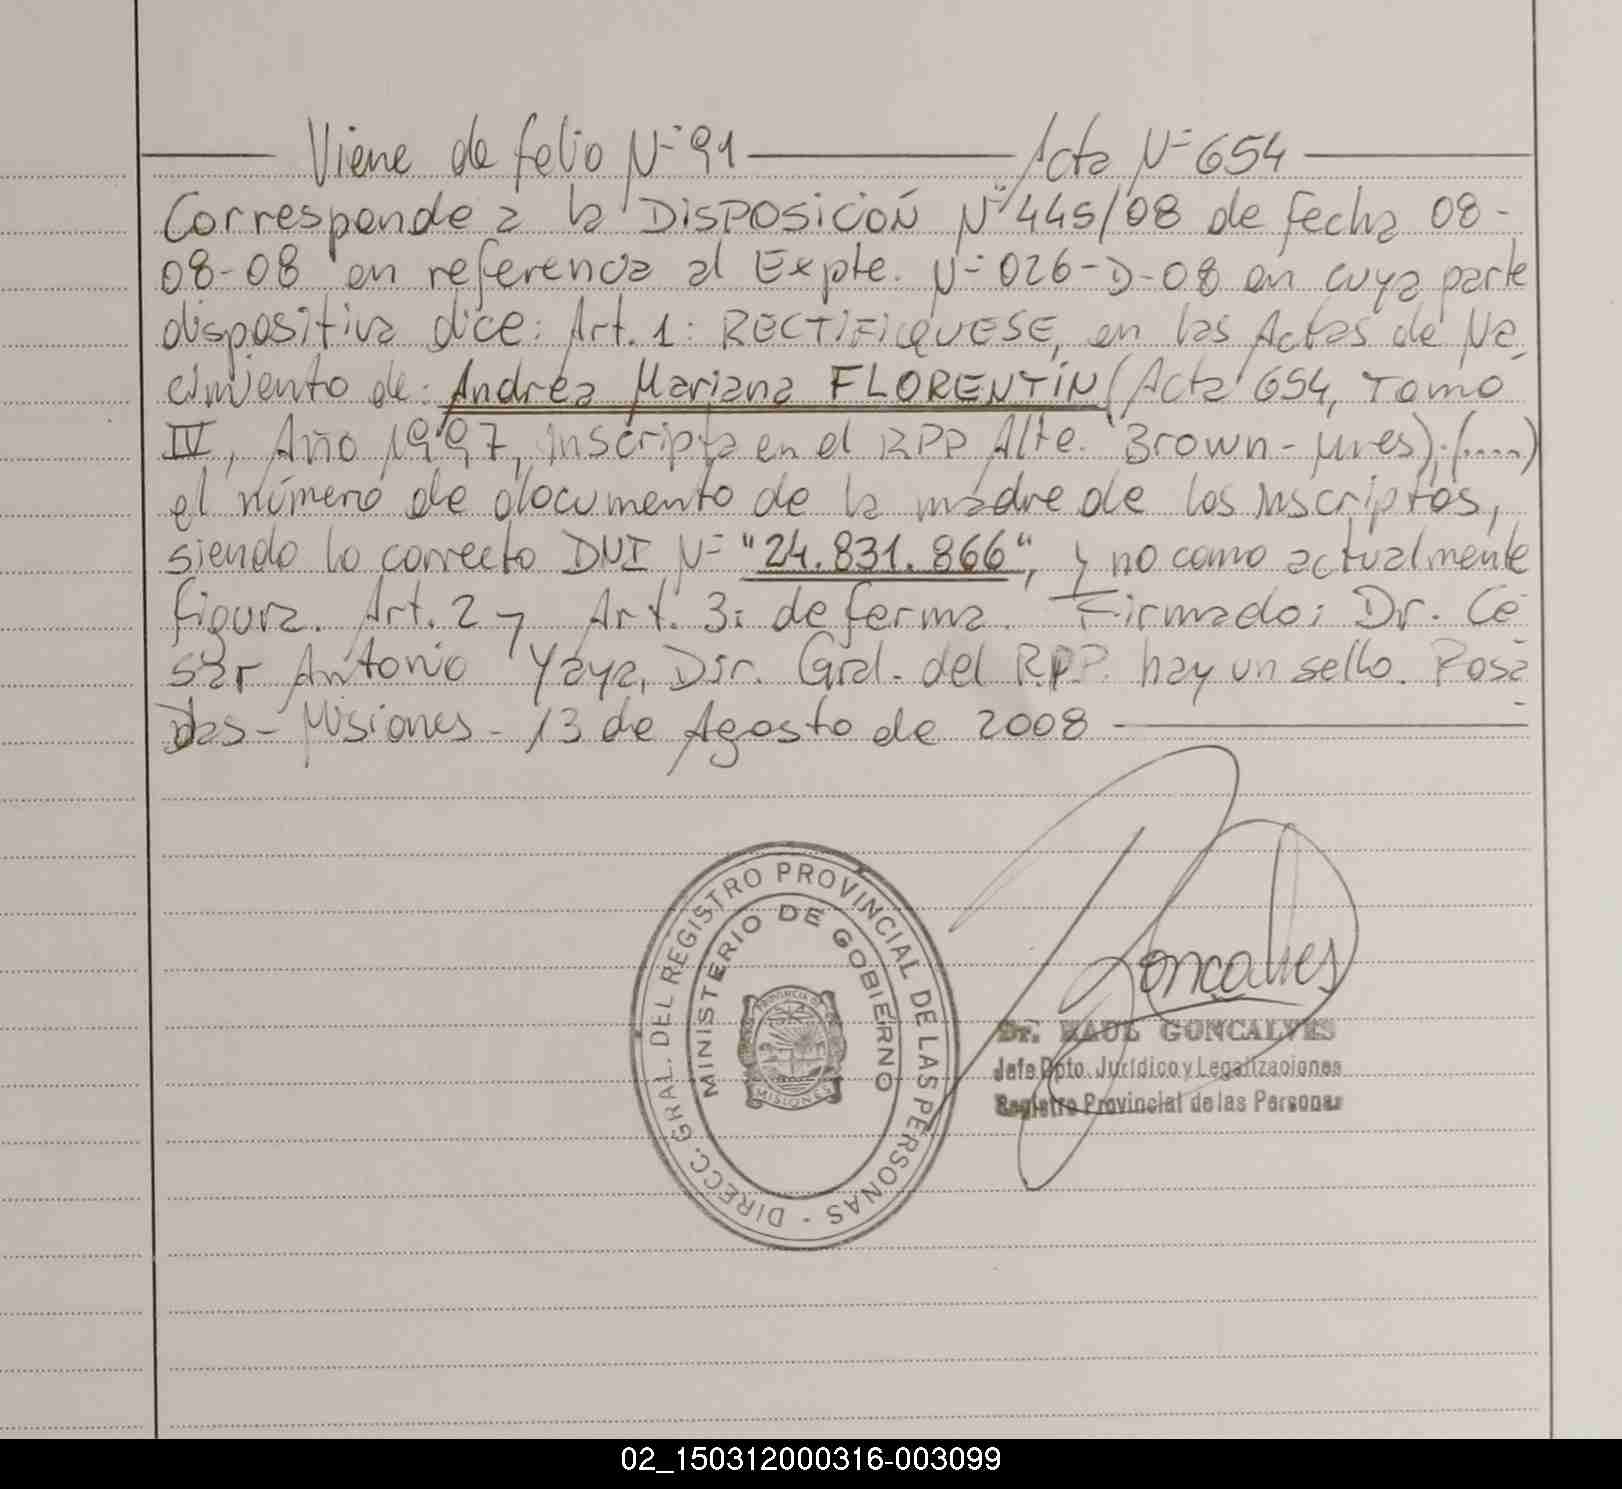 Viene de folio N° 91 Acta N° 654
Corresponde a la DISPOSICIÓN N° 445/08 de fecha 08-
08-08 en referencia al Expte. N° 026-D-08 en cuya parte
dispositiva dice: Art. 1: RECTIFIQUESE, en las Actas de Na
cimiento de: Andrea Mariana FLORENTÍN (Acta 654, Tomo
IV, Año 1997, inscripta en el RPP Alte. Brown-Mnes); (....)
el número de documento de la madre de los inscriptos,
siendo lo correcto DNI N° "24.831.866", y no como actualmente
figura. Art. 2 y Art. 3: de forma. Firmado: Dr. Cé
sar Antonio Yaya, Dir. Gral. del R.P.P. hay un sello. Posa
das - Misiones - 13 de Agosto de 2008
DIRECC. GRAL. DEL REGISTRO PROVINCIAL DE LAS PERSONAS -
MINISTERIO DE GOBIERNO
PROVINCIA DE
MISIONES
Goncalves
Dr. RAUL GONCALVES
Jefe Dpto. Jurídico y Legalizaciones
Registro Provincial de las Personas
02_150312000316-003099